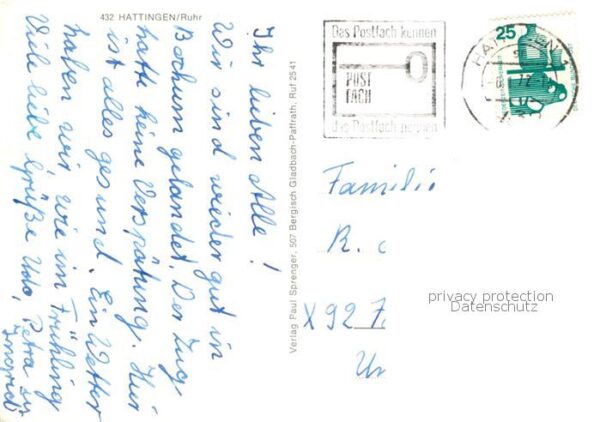 432 HATTINGEN/Ruhr
Ihr lieben Alle!
Wir sind wieder gut in
Bochum gelandet. Der Zug
hatte keine Verspätung. Hier
ist alles gesund. Ein Wetter
haben wir wie im Frühling
Viele liebe Grüße Udo, Petra u
Ingrid
Verlag Paul Sprenger, 507 Bergisch Gladbach-Paffrath, Ruf 2541
Das Postfach kennen
POST
FACH
die Postfach nennen
HATTINGEN 1
25
Familie
R.
X 92
privacy protection
Datenschutz